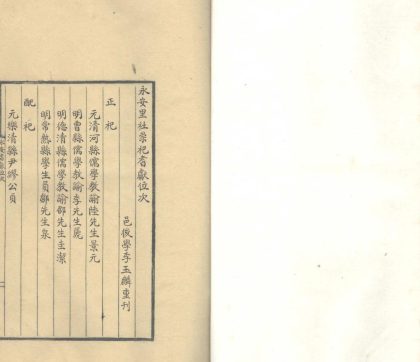 永安里社崇祀耆獻位次
邑後學李玉麟重刊
正祀
元清河縣儒學教諭陸先生景元
明曹縣儒學教諭李先生
明德清縣儒學教諭邵先生圭潔
明常熟縣學生員鄒先生泉
配祀
元樂清縣尹繆公貞